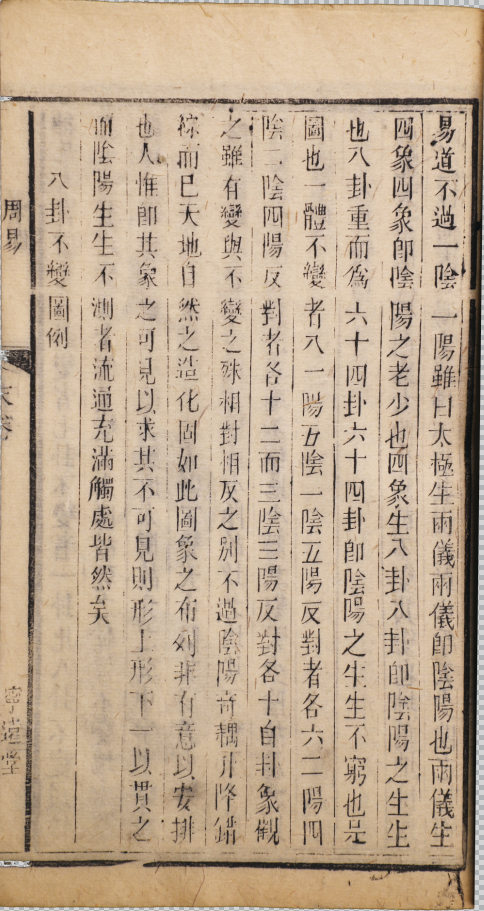 易道不過一陰一陽雖曰太極生兩儀兩儀即陰陽也兩儀生
四象四象即陰陽之老少也四象生八卦八卦即陰陽之生生
也八卦重而為六十四卦六十四卦即陰陽之生生不窮也是
圖也一體不變者八一陽五陰一陰五陽反對者各六二陽四
陰二陰四陽反對者各十二而三陰三陽反對各十自卦象觀
之雖有變與不變之殊相對相反之別不過陰陽奇耦升降錯
綜而已天地自然之造化固如此圖象之布列非有意以安排
也人惟即其象之可見以求其不可見則形上形下一以貫之
而陰陽生生不測者流通充滿觸處皆然矣
八卦不變圖例
周易
堂